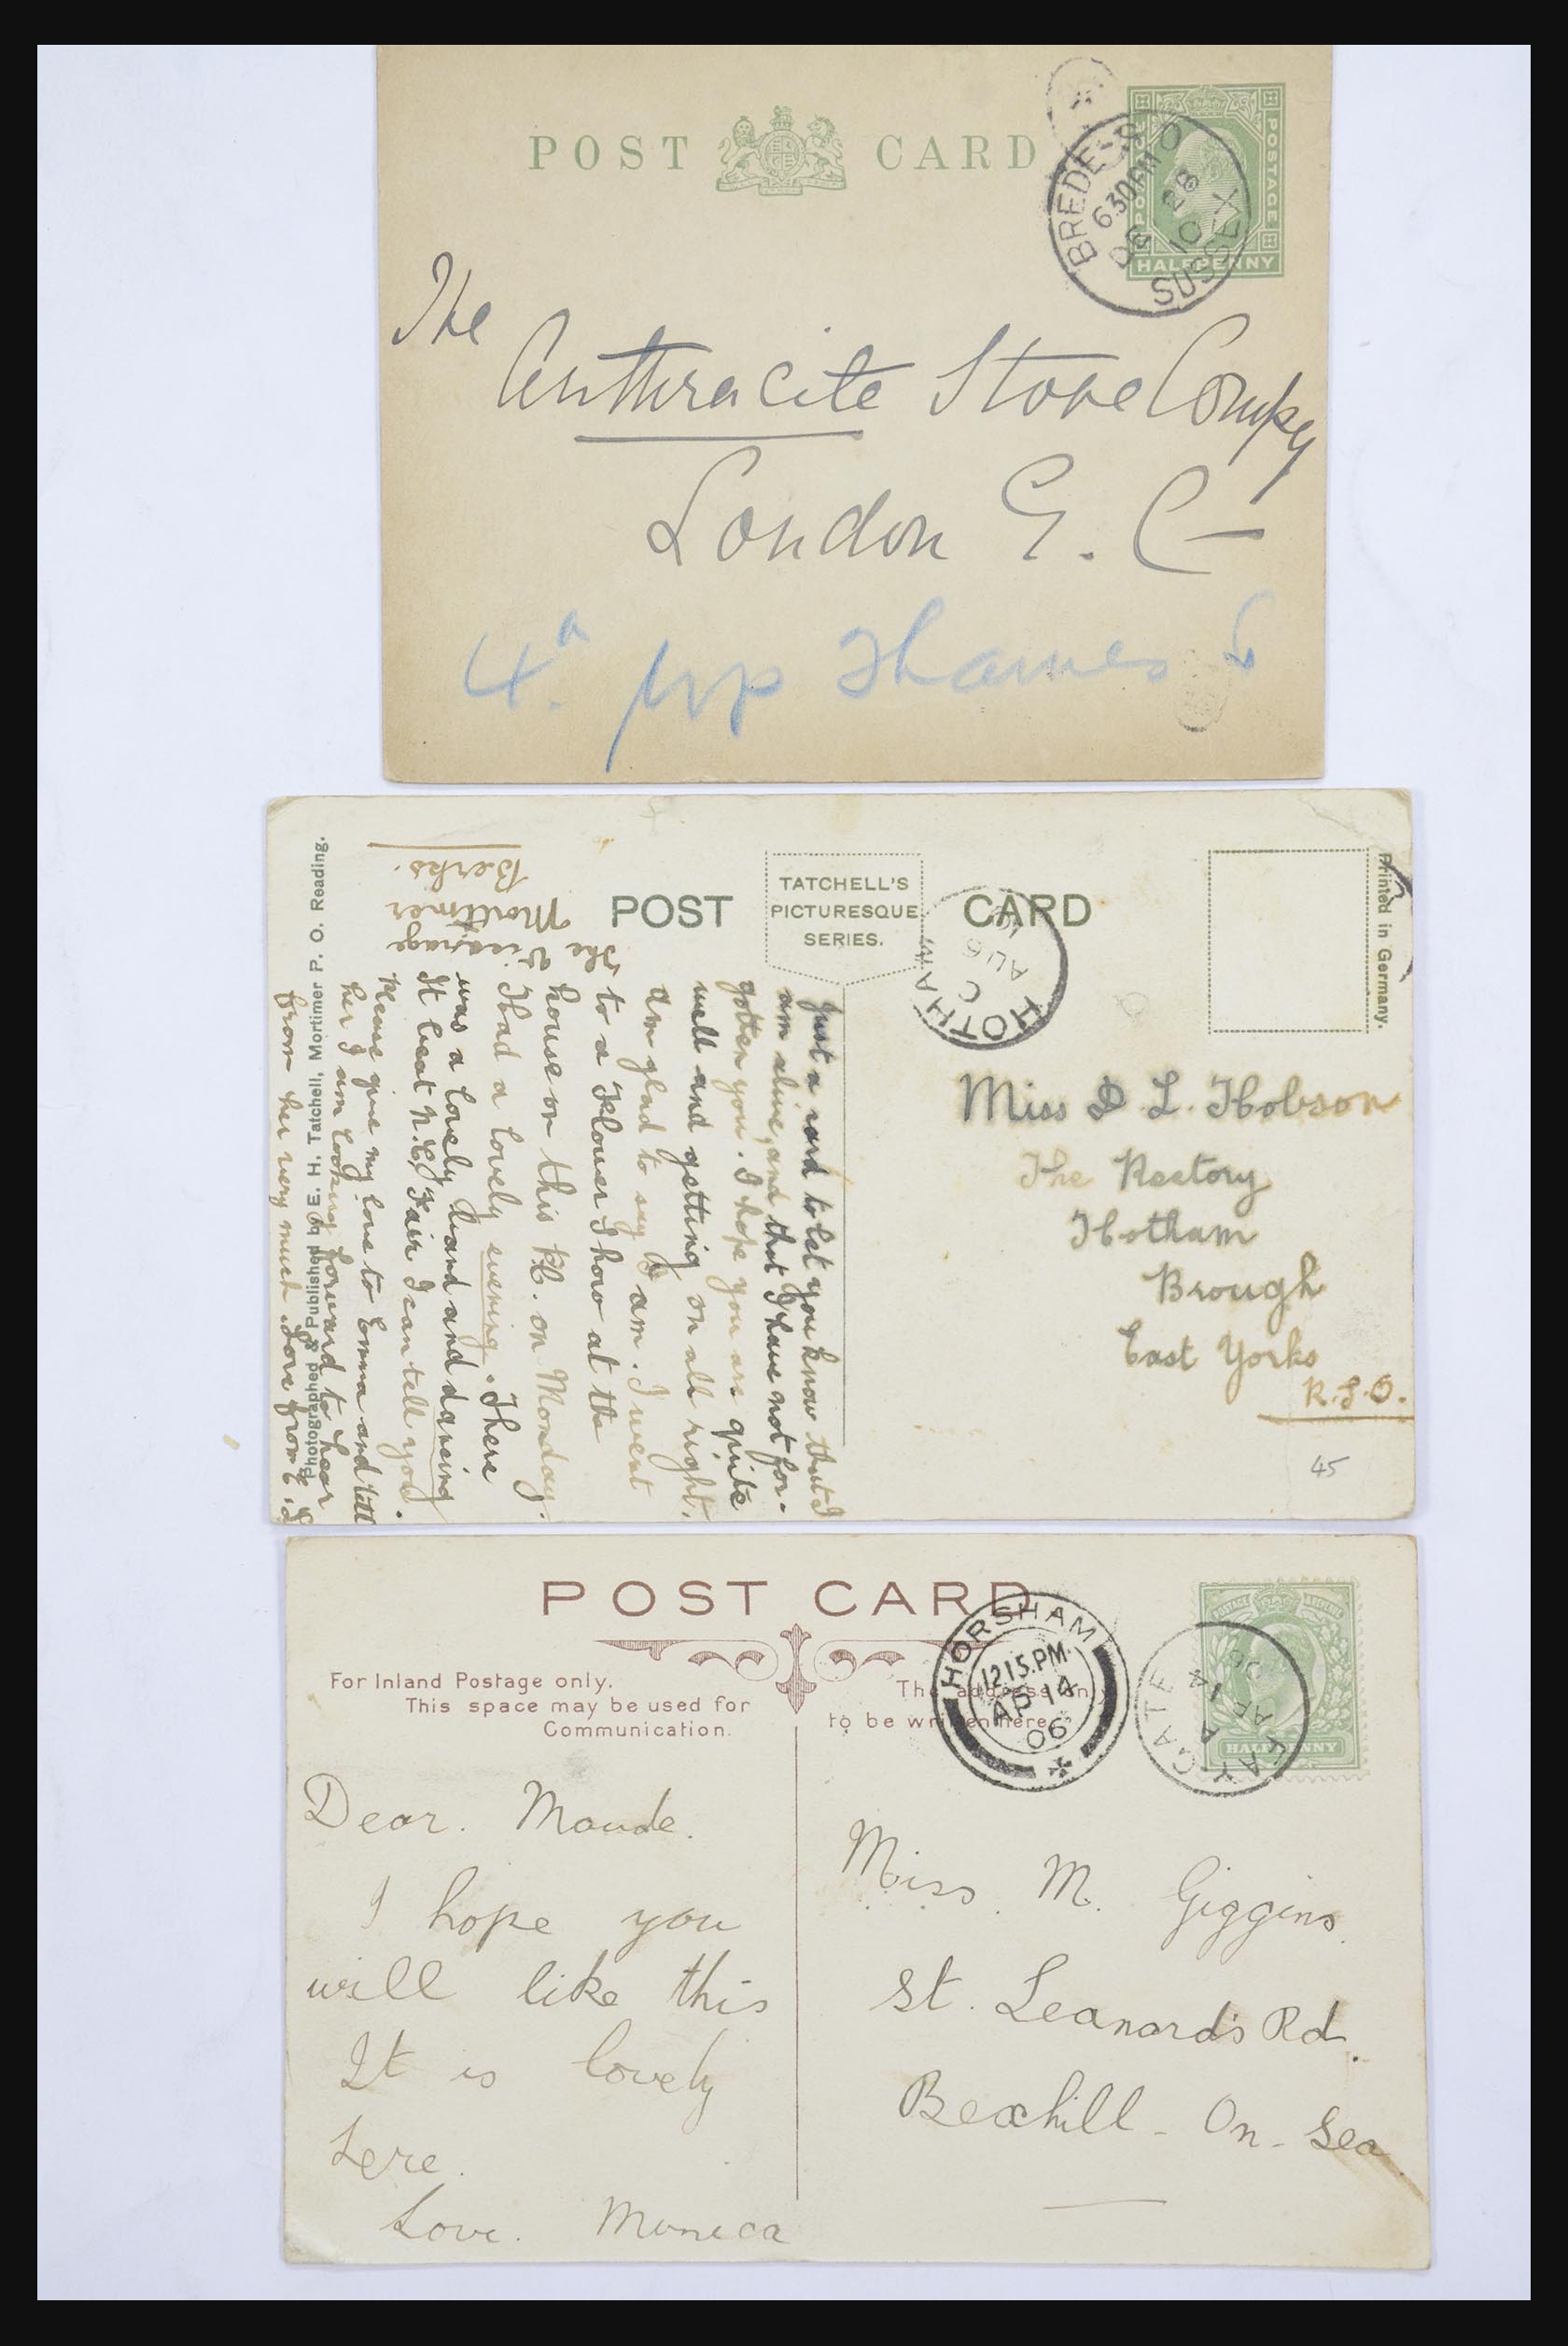 POST CARD
BREDE-S.O
630PM
DE 28
10
SUSSEX
POSTAGE
POSTAGE
HALFPENNY
The
Anthracite Stove Compy
London E.C—
4a Up Thames St
POST CARD
TATCHELL'S
PICTURESQUE
SERIES.
HOTHAM
C
AU 6
Printed in Germany.
Photographed & Published by E. H. Tatchell, Mortimer P. O. Reading.
The Vicarage
Mortimer
Berks.
Just a card to let you know that I
am alive, and that I have not for-
gotten you. I hope you are quite
well and getting on all right,
am glad to say I am. I went
to a Flower Show at the
house on this P.C. on Monday.
I had a lovely evening. There
was a lovely band and dancing
It beat N.C. Fair I can tell you.
Please give my love to Emma and tell
her I am looking forward to hear
from her very much. Love from E.S
Miss D. L. Hobson
The Rectory
Hotham
Brough
East Yorks
R.S.O.
45
POST CARD
For Inland Postage only.
This space may be used for
Communication.
The address only
to be written here.
HORSHAM
12 15.PM
AP 14
06
FAYGATE
A
AP 14
06
POSTAGE & REVENUE
HALFPENNY
Dear. Maude.
I hope you
will like this
It is lovely
here.
Love. Moneca
Miss. M. Giggins.
St. Leanard's Rd.
Bexhill - On - Sea.